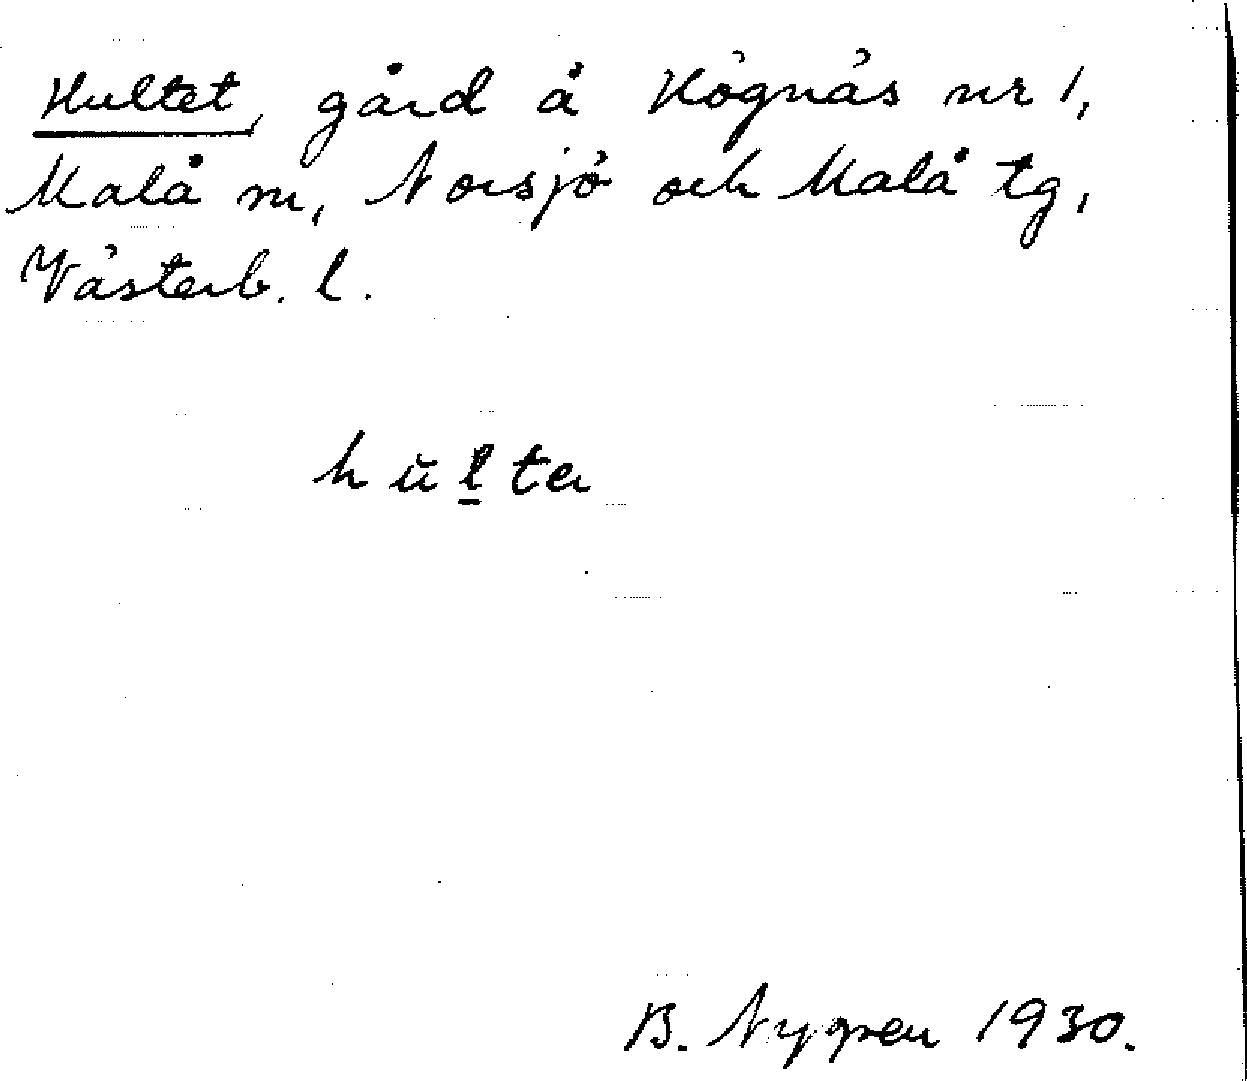 Hultet, gård å Högnäs nr 1,
Malå sn, Norsjö och Malå tg,
Västerb. l.
hŭl̲ta
B. Nygren 1930.